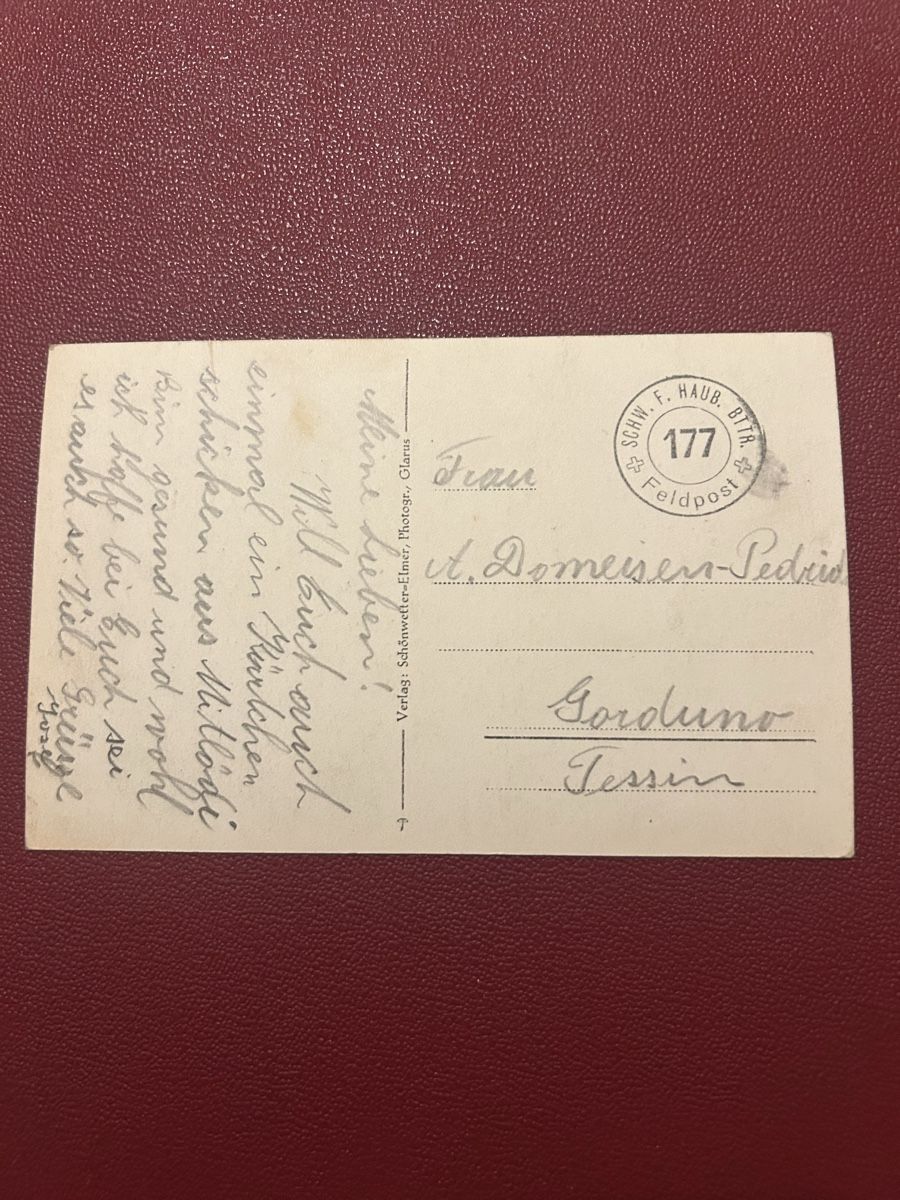 Meine Lieben!
Will Euch auch
einmal ein Kärtchen
schicken aus Mitlödi
Bin gesund und wohl
ich hoffe bei Euch sei
es auch so. Viele Grüsse
Verlag: Schönwetter-Elmer, Photogr., Glarus
SCHW. F. HAUB. BTTR.
177
Feldpost
Frau
A. Domeisen-Pedrid
Gorduno
Tessin